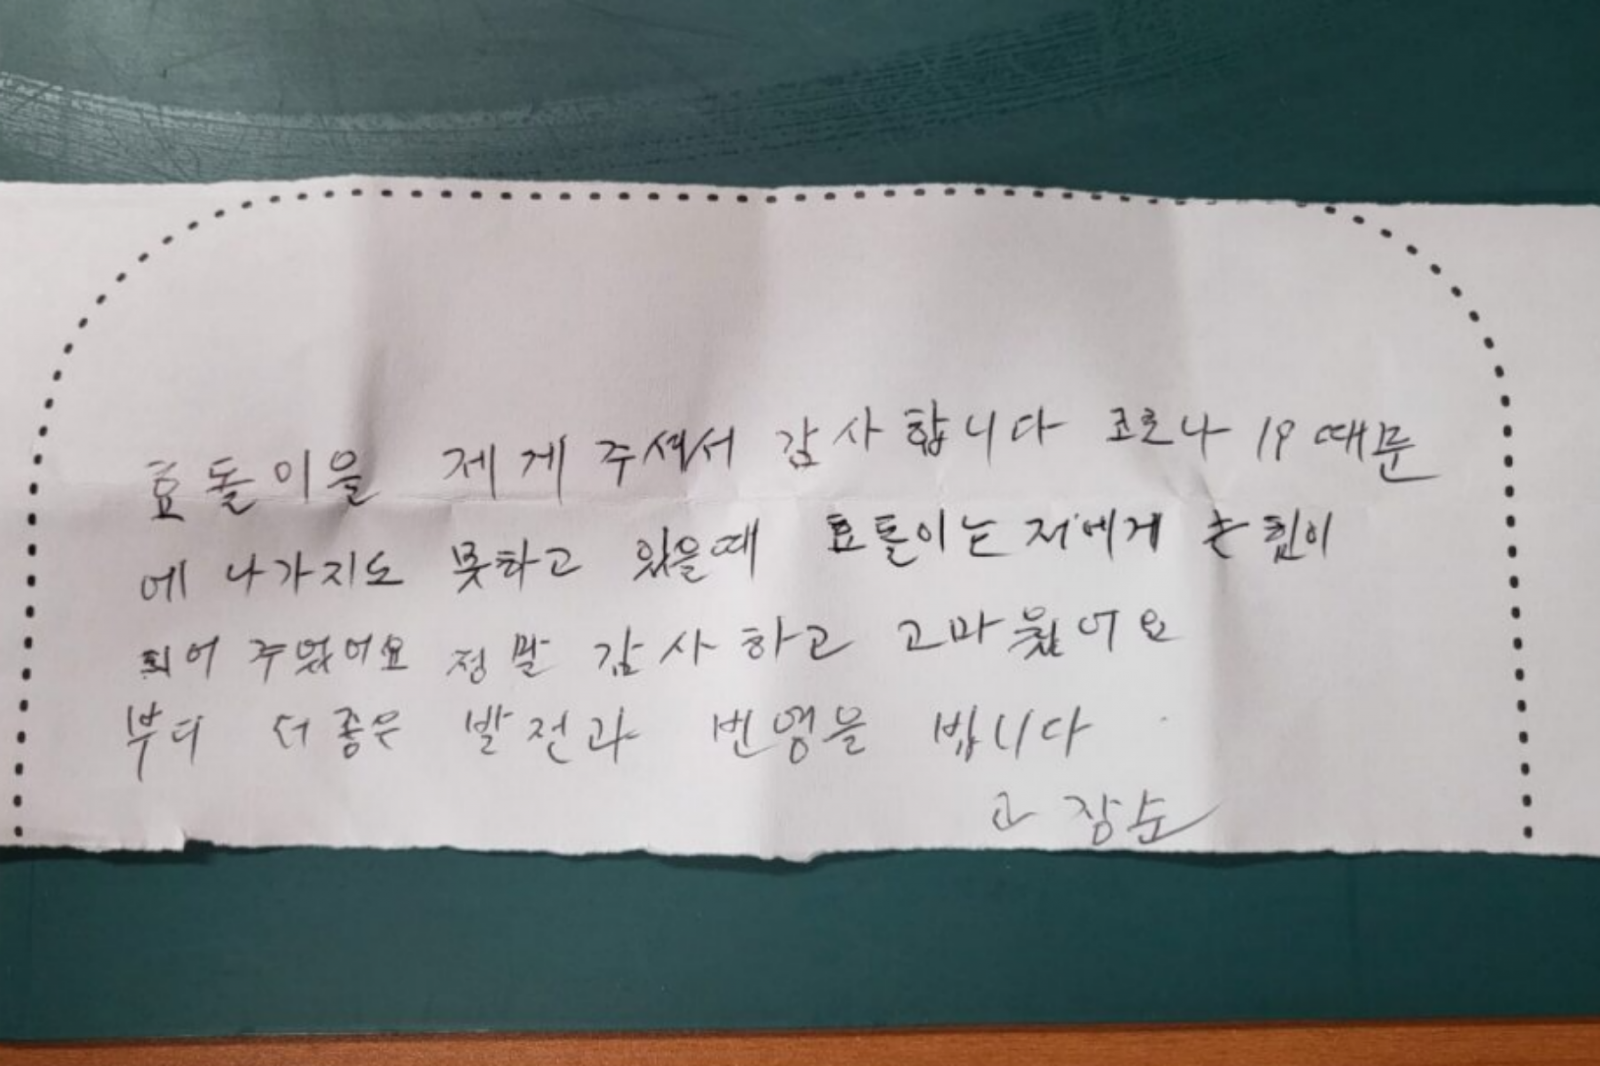 효돌이을 제게 주셔서 감사합니다 코로나 19 때문
에 나가지도 못하고 있을때 효돌이는 저에게 큰 힘이
되어 주었어요 정말 감사하고 고마웠어요
부디 더 좋은 발전과 번영을 빕니다
고 장순